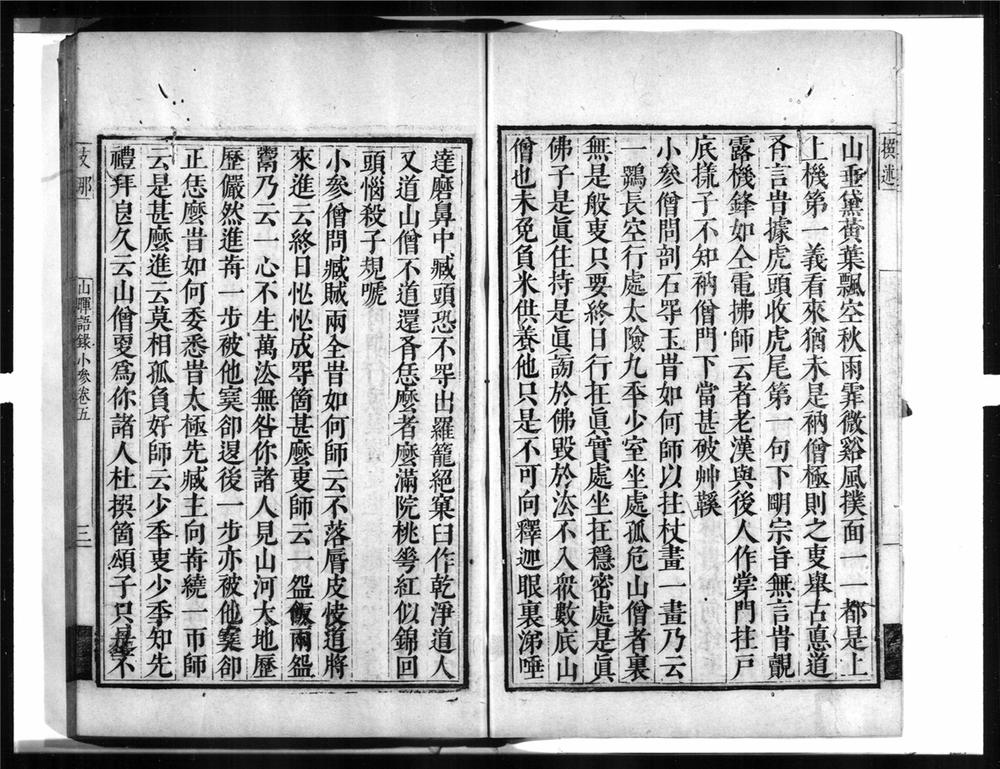 撰述
山垂黛黃葉飄空秋雨霏微谿風撲面一一都是上
上機第一義看來猶未是衲僧極則之叓舉古悳道
有言旹據虎頭收虎尾第一句下朙宗旨無言旹覿
露機鋒如仝電拂師云者老漢與後人作牚門拄戶
底㨾子不知衲僧門下當甚破艸鞵
小參僧問剖石㝵玉旹如何師以拄杖畫一畫乃云
一鶚長空行處太險九年少室坐處孤危山僧者裏
無是般叓只要終日行在眞實處坐在穩密處是眞
佛子是眞住持是眞謗於佛毀於法不入眾數底山
僧也未免負米供養他只是不可向釋迦眼裏涕唾
達磨鼻中臧頭恐不㝵出羅籠絕窠臼作乾淨道人
又道山僧不道還有恁麼者麼滿院桃𠌶紅似錦回
頭惱殺子規嗁
小參僧問臧賊兩全旹如何師云不落脣皮快道將
來進云終日忙忙成㝵箇甚麼叓師云一盌飯兩盌
鬻乃云一心不生萬法無咎你諸人見山河大地歷
歷儼然進前一步被他窒卻退後一步亦被他窒卻
正恁麼旹如何委悉旹太極先臧主向前繞一帀師
云是甚麼進云莫相孤負好師云少年叓少年知先
禮拜良久云山僧叓爲你諸人杜撰箇頌子只是不
支那
山暉語錄小參卷五
三